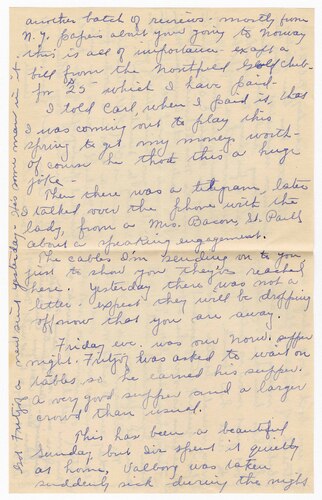 another batch of reviews - mostly from
N.Y. papers about your going to Norway
this is all of importance - except a
bill from the Montfield Golf club -
for 25 which I have paid -
I told Carl, when I paid it, that
I was coming out to play this
spring to get my money's worth -
of course he thot this a huge
joke -
Then there was a telegram, later
I talked over the phone with the
lady, from a Mrs. Bacon, St. Paul's
about a speaking engagement.
The cables I'm sending on to you
just to show you they've reached
here. Yesterday there was not a
letter - expect they will be dropping
off now that you are away.
Friday eve. was our Norw. supper
night. Fritzof was asked to wait on
tables so he earned his supper.
A very good supper and a larger
crowd than usual.
This has been a beautiful
Sunday but I've spent it quietly
at home. Valborg was taken
suddenly sick during the night
Got Fritzof a new suit yesterday - He's some man in it